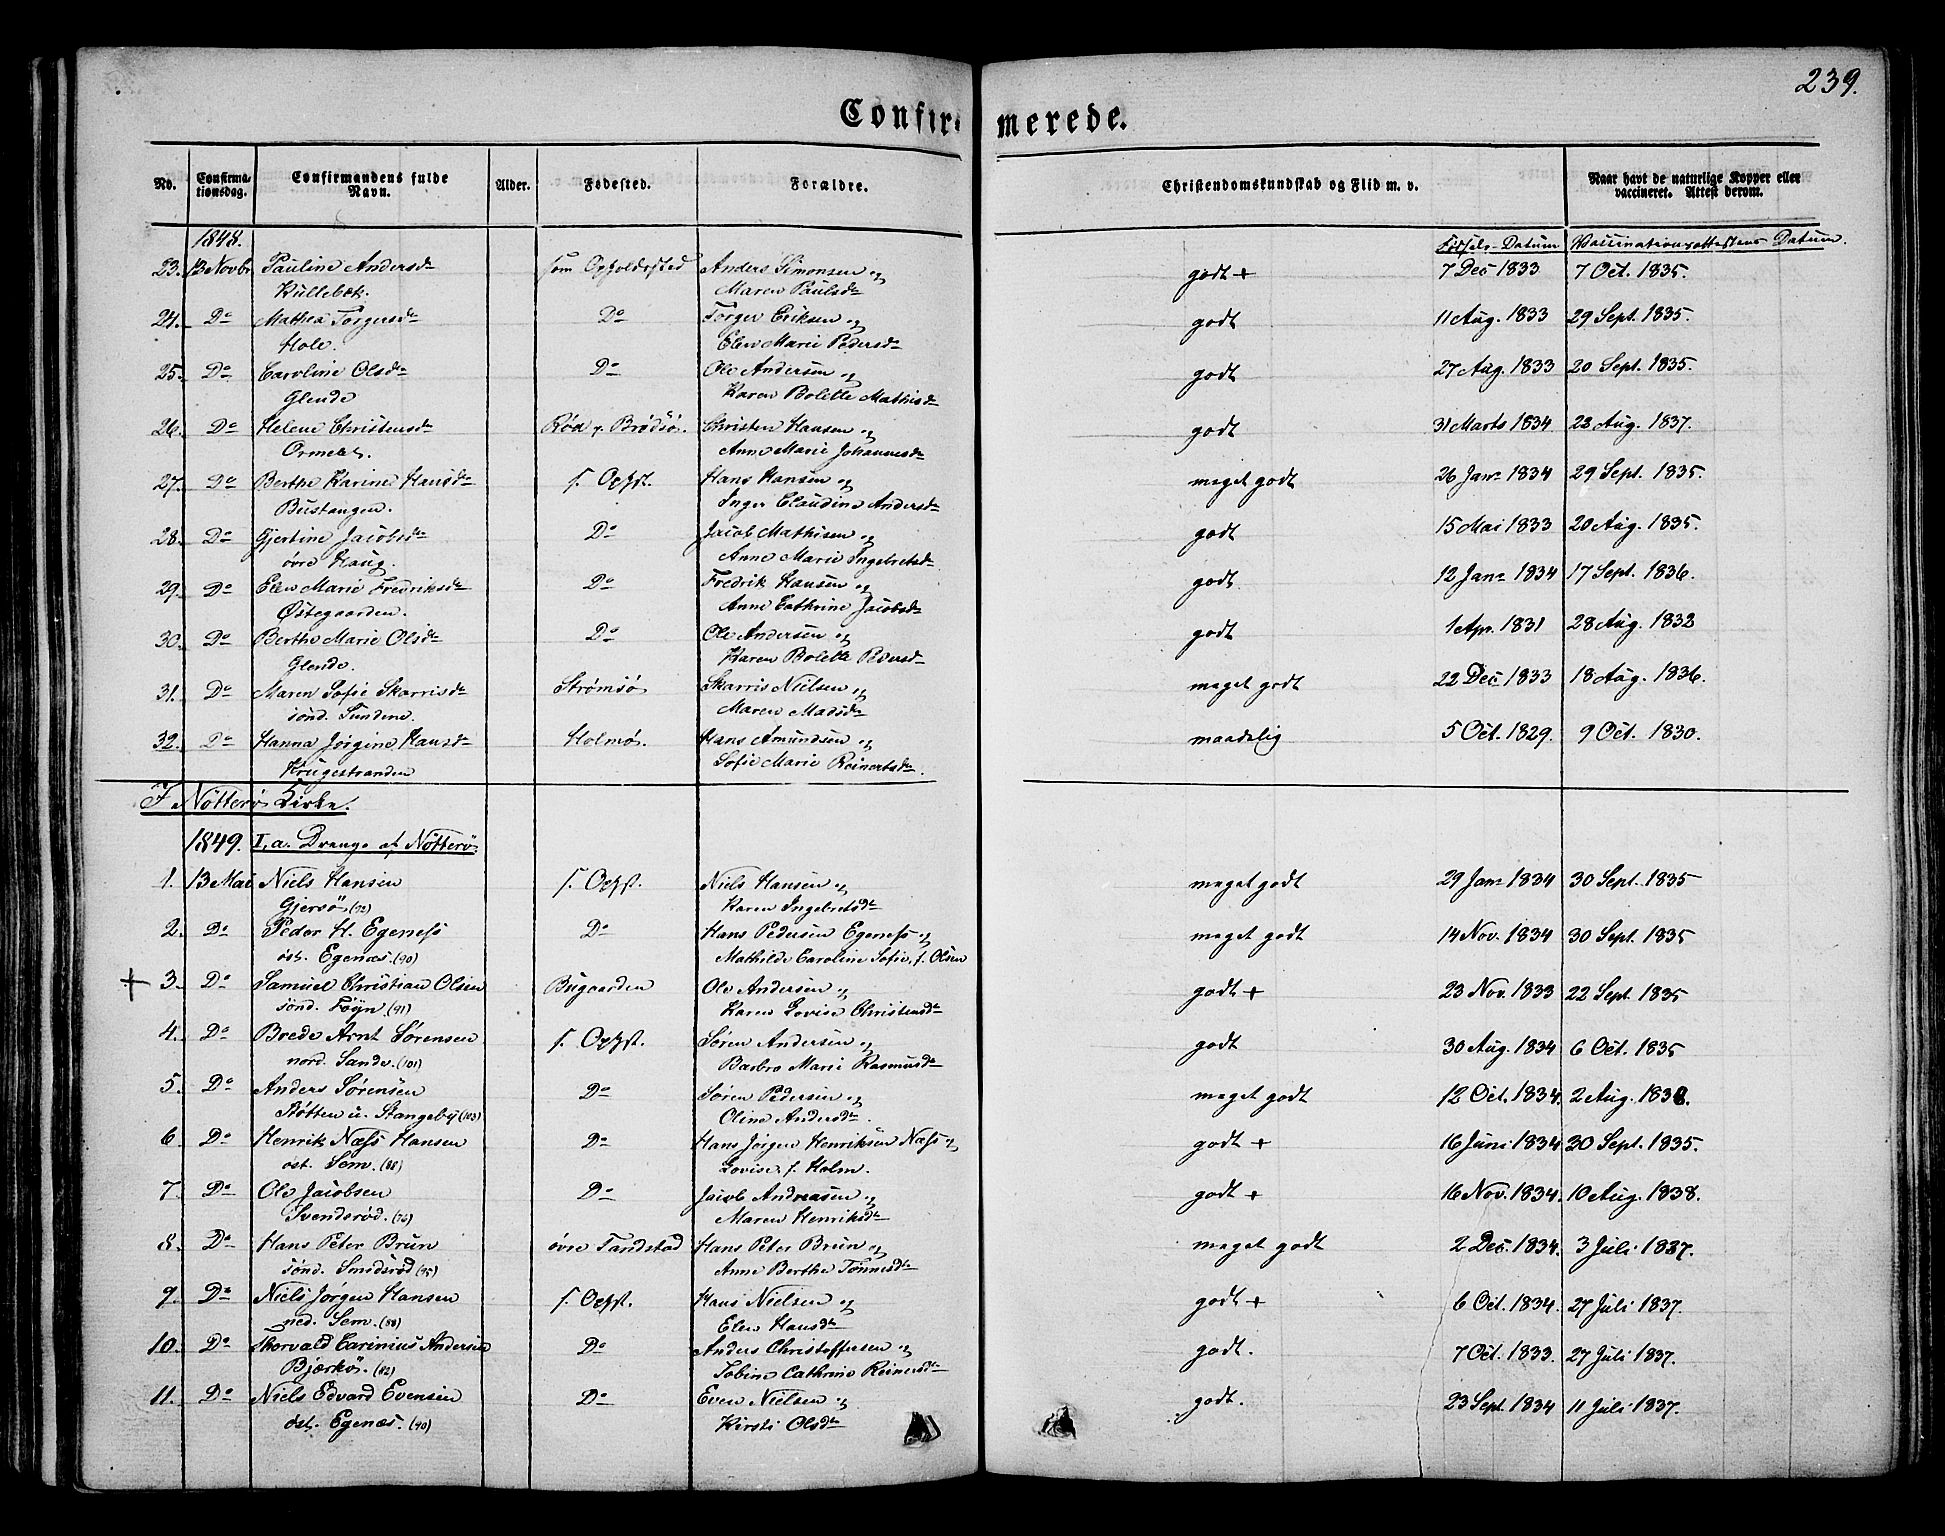 239.
Confirmerede.
No. Confirmationsdag. Confirmandens fulde Navn. Alder. Fødested. Forældre. Christendomskundskab og Flid m. v. Naar havt de naturlige Kopper eller vaccineret. Attest derom.
1848. Fødsels-Datum Vaccinationsattestens Datum.
23. 13 Novbr Pauline Andersdr som Opholdssted Anders Simonsen og godt + 7 Dec 1833 7 Oct. 1835.
Kullebæk. Maren Paulsdr
24. Do Mathea Torgersdr Do Torger Eriksen og godt 11 Aug. 1833 29 Sept. 1835.
Hole. Elen Marie Pedersdr
25. Do Caroline Olsdr Do Ole Andersen og godt 27 Aug. 1833 20 Sept. 1835.
Glende Karen Bolette Mathisdr
26. Do Helene Christensdr Rød p. Brødsø. Christen Hansen og godt 31 Marts 1834 22 Aug. 1837.
Ormelet. Anne Marie Johannesdr
27. Do Berthe Karine Hansdr s. Opst. Hans Hansen og meget godt 26 Janr 1834 29 Sept. 1835.
Bustangen. Inger Claudine Andersdr
28. Do Gjertine Jacobsdr Do Jacob Mathisen og godt 15 Mai 1833 20 Aug. 1835.
øvre Haug. Anne Marie Ingebretsdr
29. Do Elen Marie Fredriksdr Do Fredrik Hansen og godt. 12 Janr 1834 17 Sept. 1836.
Østegaarden. Anne Cathrine Jacobsdr
30. Do Berthe Marie Olsdr Do Ole Andersen og godt 1 Apr. 1831 28 Aug. 1832
Glende. Karen Bolette Pedersdr
31. Do Maren Sofie Skarrisdr Strømsø Skarris Nielsen og meget godt 22 Dec 1833 18 Aug. 1836.
sønd. Sundene. Maren Madsdr
32. Do Hanna Jørgine Hansdr Holmø. Hans Amundsen og maadelig 5 Oct. 1829. 9 Oct. 1830.
Krugestranden Sofie Marie Reinertsdr.
I Nøtterø Kirke.
1849. I, a. Drenge af Nøtterø
1. 13 Mai Niels Hansen s. Opst. Niels Hansen og meget godt 29 Janr 1834 30 Sept. 1835
Gjersø. (92) Karen Ingebretsdr
2. Do Peder H. Egeness Do Hans Pedersen Egeness og meget godt 14 Nov. 1834 30 Sept. 1835
øst. Egenæs. (90) Mathilde Caroline Sofie, f. Olsen
+ 3. Do Samuel Christian Olsen Bugaarden Ole Andersen og godt + 23 Nov. 1833 22 Sept. 1835
sønd. Føyn. (91) Karen Lovise Christensdr
4. Do Brede Arnt Sørensen s. Opst. Søren Andersen og godt 30 Aug. 1834 6 Oct. 1835
nord. Sande. (101) Barbro Marie Rasmusdr
5. Do Anders Sørensen Do Søren Pedersen og meget godt 12 Oct. 1834. 2 Aug. 1838.
Støtten u. Stangeby (103) Oline Andersdr.
6. Do Henrik Næss Hansen Do Hans Jørgen Henriksen Næss og godt + 16 Juni 1834 30 Sept. 1835.
øst. Sem. (88) Lovise, f. Holm.
7. Do Ole Jacobsen Do Jacob Andreasen og godt + 16 Nov. 1834. 10 Aug. 1838.
Svendsrød. (76) Maren Henriksdr
8. Do Hans Peter Brun øvre Tandstad Hans Peter Brun og meget godt 2 Dec. 1834. 3 Juli 1837.
sønd. Smidsrød (95) Anne Berthe Tønnesdr
9. Do Niels Jørgen Hansen s. Opst. Hans Nielsen og godt + 6 Oct. 1834. 27 Juli 1837.
ned. Sem. (88) Elen Hansdr
10. Do Thorvald Carinius Andersen Do Anders Christoffersen og godt. 7 Oct. 1833. 27 Juli 1837.
Bjærkø. (82) Tobine Cathrine Reinersdr
11. Do Niels Edvard Evensen Do Even Nielsen og godt. 23 Sept. 1834 11 Juli 1837.
øst. Egenæs. (90) Kirsti Olsdr